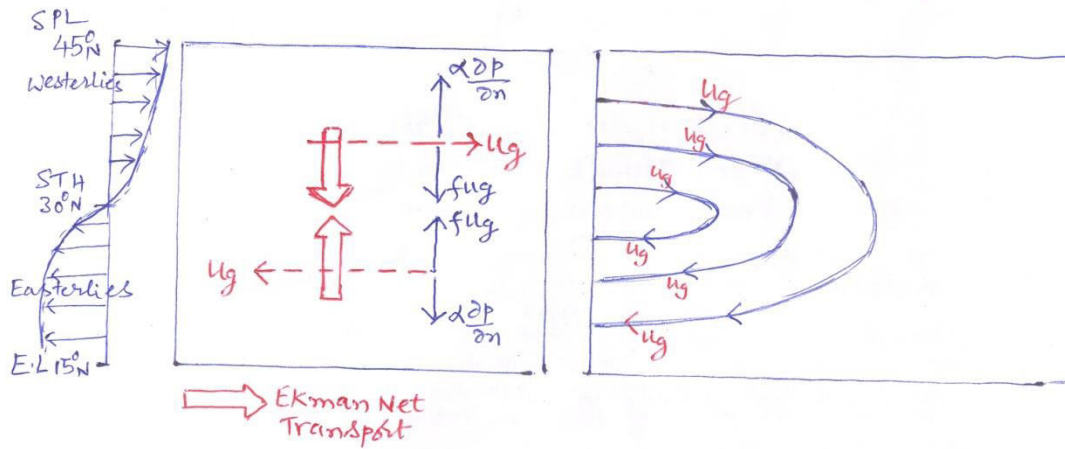 SPL
45°N
Westerlies
STH
30°N
Easterlies
E.L 15°N
α∂p/∂n
ug
fug
fug
ug
α∂p/∂n
Ekman Net
Transport
ug
ug
ug
ug
ug
ug